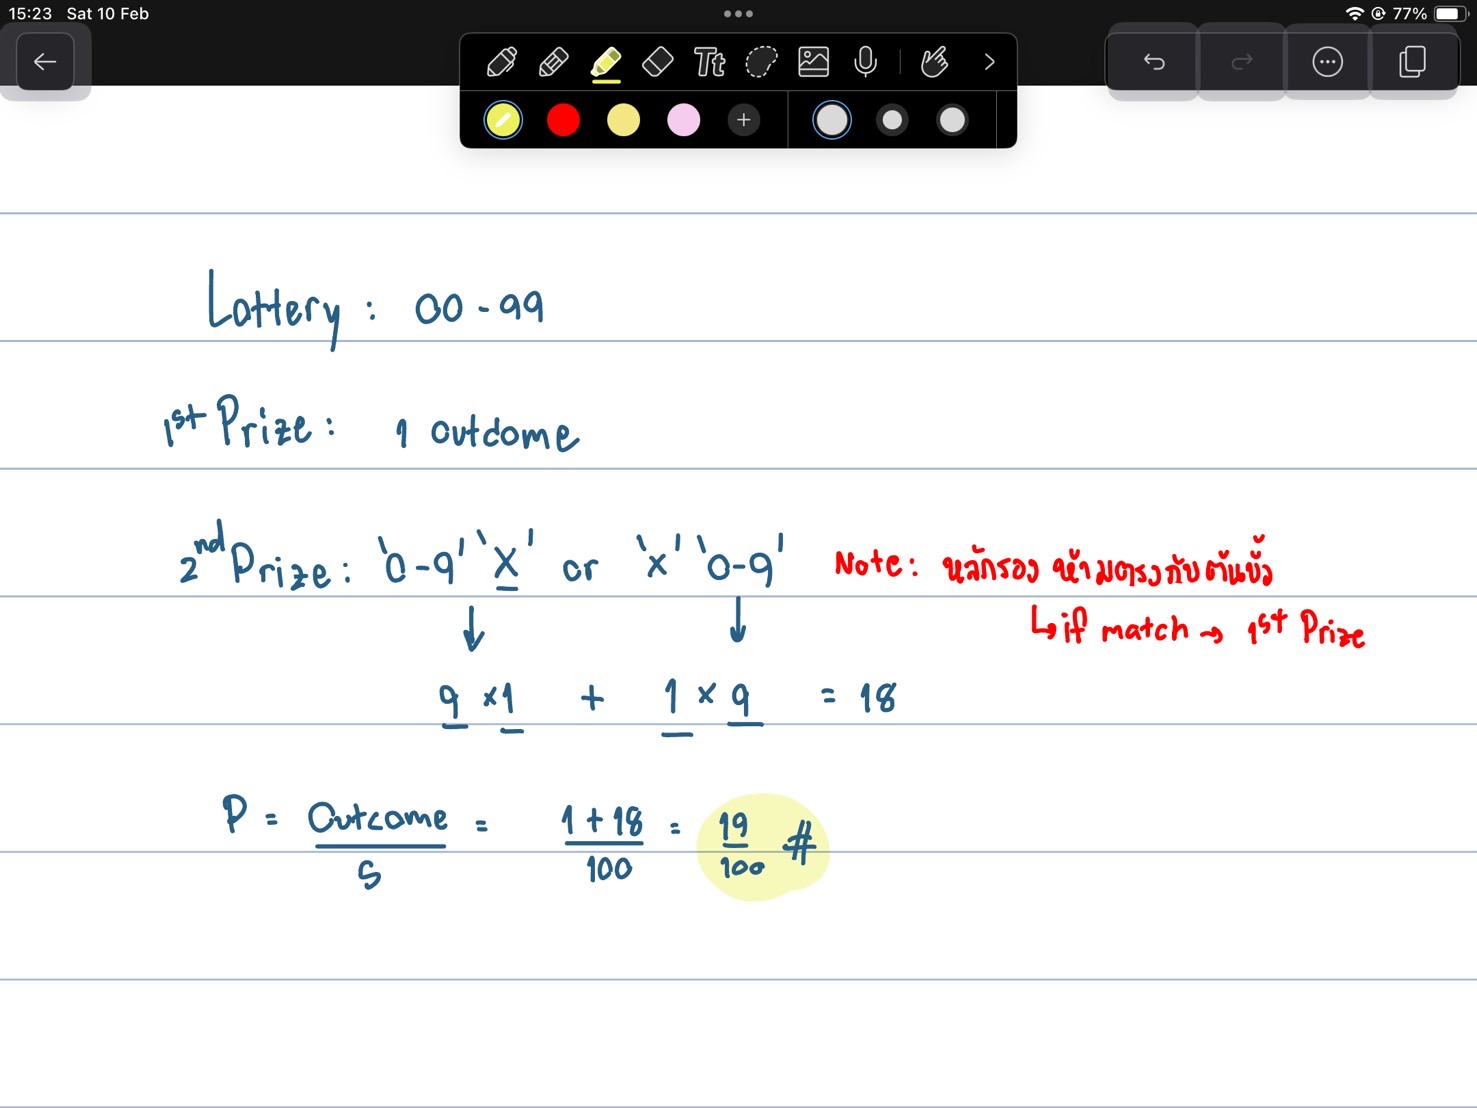 15:23 Sat 10 Feb
77%
Tt
Lottery : 00 - 99
1st Prize : 1 outcome
2nd Prize : '0-9' 'x' or 'x' '0-9'
Note : หลักรอง ห้ามตรงกับต้นขั้ว
↳ if match → 1st Prize
↓ ↓
9 × 1 + 1 × 9 = 18
P = Outcome / S = 1 + 18 / 100 = 19 / 100 #